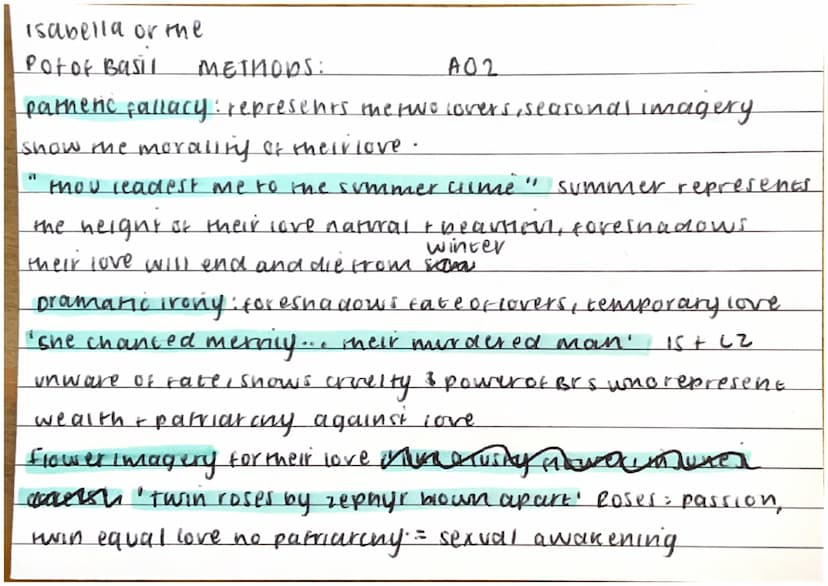 Isabella or the
Pot of Basil METHODS: AO2
pathetic fallacy: represents the two lovers, seasonal imagery
show the morality of their love.
"thou leadest me to the summer clime" summer represents
the height of their love natural + beautiful, foreshadows
winter
their love will end and die from
Dramatic irony: foreshadows fate of lovers, temporary love
'she chanted merrily... their murdered man' IS + LZ
unware of fate, shows cruelty & power of BrS who represent
wealth + patriarchy against love
flower imagery for their love
'twin roses by zephyr blown apart' Roses = passion,
twin equal love no patriarchy = sexual awakening